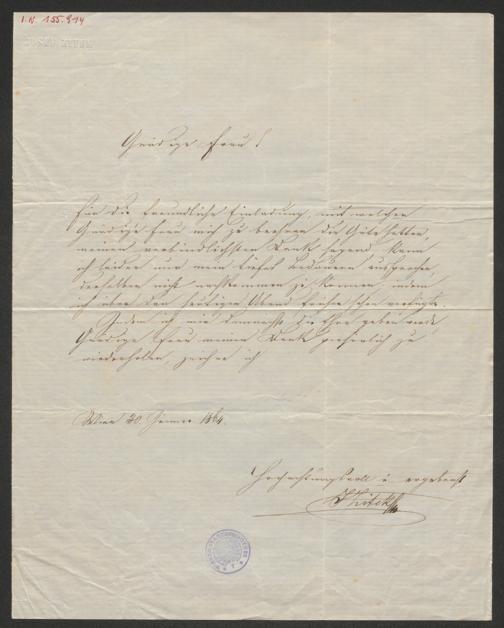 I.N. 155.914
Gnädige Frau!
Für die freundliche Einladung, mit welcher
Gnädige Frau mich zu beehren die Güte hatten,
meinen verbindlichsten Dank sagend, kann
ich leider nur mein tiefes Bedauern aussprechen,
derselben nicht nachkommen zu können, indem
ich über den heutigen Abend früher schon verfügte.
Indem ich mir demnächst die Ehre geben werde
Gnädige Frau meinen Dank persönlich zu
wiederholen, zeichne ich
Wien 20. Jänner 1864.
Hochachtungsvoll u. ergebenst